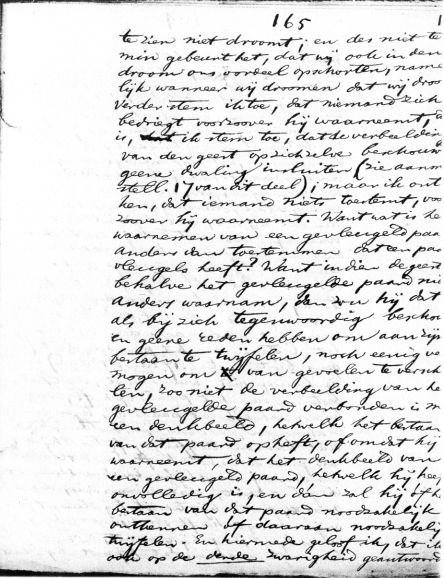 165
te zien niet droomt; en des niet te
min gebeurt het, dat wij ook in den
droom ons oordeel opschorten, name
lijk wanneer wij droomen dat wij droo
Verder stem ik toe, dat niemand zich
bedriegt voorzoover hij waarneemt, d
is, ik stem toe, dat de verbeelding
van den geest op zich zelve beschouw
geene dwaling insluiten (zie aanm
stell. 17 van dit deel); maar ik ont
ken, dat iemand niets toestemt, voo
zoover hij waarneemt. Want wat is he
waarnemen van een gevleugeld paa
anders dan toestemmen dat een paa
vleugels heeft? Want indien de geest
behalve het gevleugelde paard nie
anders waarnam, dan zou hij dat
als bij zich tegenwoordig beschou
en geene reden hebben om aan zijn
bestaan te twijfelen, noch eenig ve
mogen om van gevoelen te versch
len, zoo niet de verbeelding van he
gevleugelde paard verbonden is m
een denkbeeld, hetwelk het bestaan
van dat paard opheft, of omdat hij
waarneemt, dat het denkbeeld van
een gevleugeld paard, hetwelk hij hee
onvolledig is, en dan zal hij óf h
bestaan van dat paard noodzakelijk
ontkennen óf daaraan noodzakelij
twijfelen. En hiermede geloof ik, dat ik
ook op de derde zwarigheid geantwoord